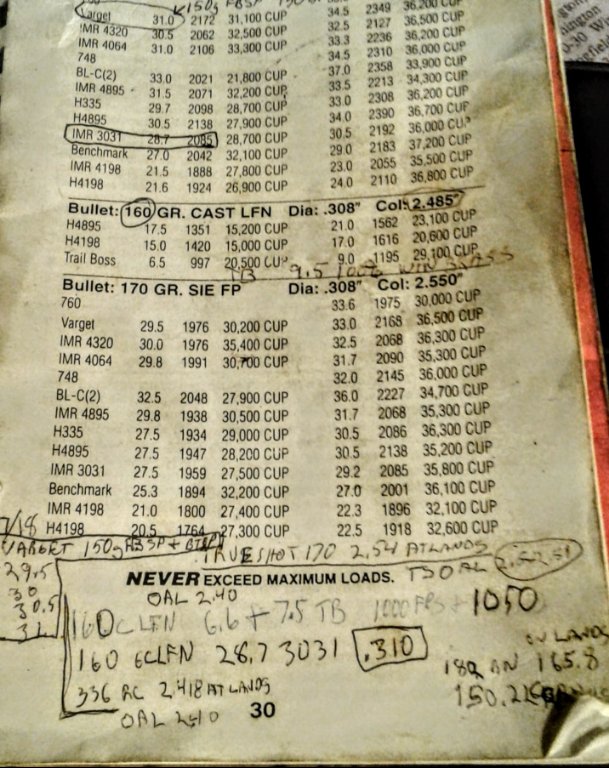 Varget 31.0 2172 31,100 CUP 34.5 2349 36,200 CUP
IMR 4320 30.5 2062 32,500 CUP 32.5 2127 36,500 CUP
IMR 4064 31.0 2106 33,300 CUP 33.3 2236 36,200 CUP
748 34.5 2310 36,000 CUP
BL-C(2) 33.0 2021 21,800 CUP 37.0 2358 33,900 CUP
IMR 4895 31.5 2071 32,200 CUP 33.5 2213 34,300 CUP
H335 29.7 2098 28,700 CUP 33.0 2308 36,200 CUP
H4895 30.5 2138 27,900 CUP 34.0 2390 36,700 CUP
IMR 3031 28.7 2085 28,700 CUP 30.5 2192 36,000 CUP
Benchmark 27.0 2042 32,100 CUP 29.0 2183 37,200 CUP
IMR 4198 21.5 1888 27,800 CUP 23.0 2055 35,500 CUP
H4198 21.6 1924 26,900 CUP 24.0 2110 36,800 CUP
Bullet: 160 GR. CAST LFN Dia: .308" Col: 2.485"
H4895 17.5 1351 15,200 CUP 21.0 1562 23,100 CUP
H4198 15.0 1420 15,000 CUP 17.0 1616 20,600 CUP
Trail Boss 6.5 997 20,500 CUP 9.0 1195 29,100 CUP
TB 9.5 100% WIN BRASS
Bullet: 170 GR. SIE FP Dia: .308" Col: 2.550"
760 33.6 1975 30,000 CUP
Varget 29.5 1976 30,200 CUP 33.0 2168 36,500 CUP
IMR 4320 30.0 1976 35,400 CUP 32.5 2068 36,300 CUP
IMR 4064 29.8 1991 30,700 CUP 31.7 2090 35,300 CUP
748 32.0 2145 36,000 CUP
BL-C(2) 32.5 2048 27,900 CUP 36.0 2227 34,700 CUP
IMR 4895 29.8 1938 30,500 CUP 31.7 2068 35,300 CUP
H335 27.5 1934 29,000 CUP 30.5 2086 36,300 CUP
H4895 27.5 1947 28,200 CUP 30.5 2138 35,200 CUP
IMR 3031 27.5 1959 27,500 CUP 29.2 2085 35,800 CUP
Benchmark 25.3 1894 32,200 CUP 27.0 2001 36,100 CUP
IMR 4198 21.0 1800 27,400 CUP 22.3 1896 32,100 CUP
H4198 20.5 1764 27,300 CUP 22.5 1918 32,600 CUP
7/18
VARGET 150g
TRUESHOT 170 2.54 AT LANDS
29.5
30
30.5
31
NEVER EXCEED MAXIMUM LOADS.
OAL 2.40
160 CLFN 6.6 + 7.5 TB 1000 FPS + 1050
160 GCLFN 28.7 3031 .310
336 RC 2.418 AT LANDS
OAL 2.40
30
LANDS
180 RN 165.8
150.2